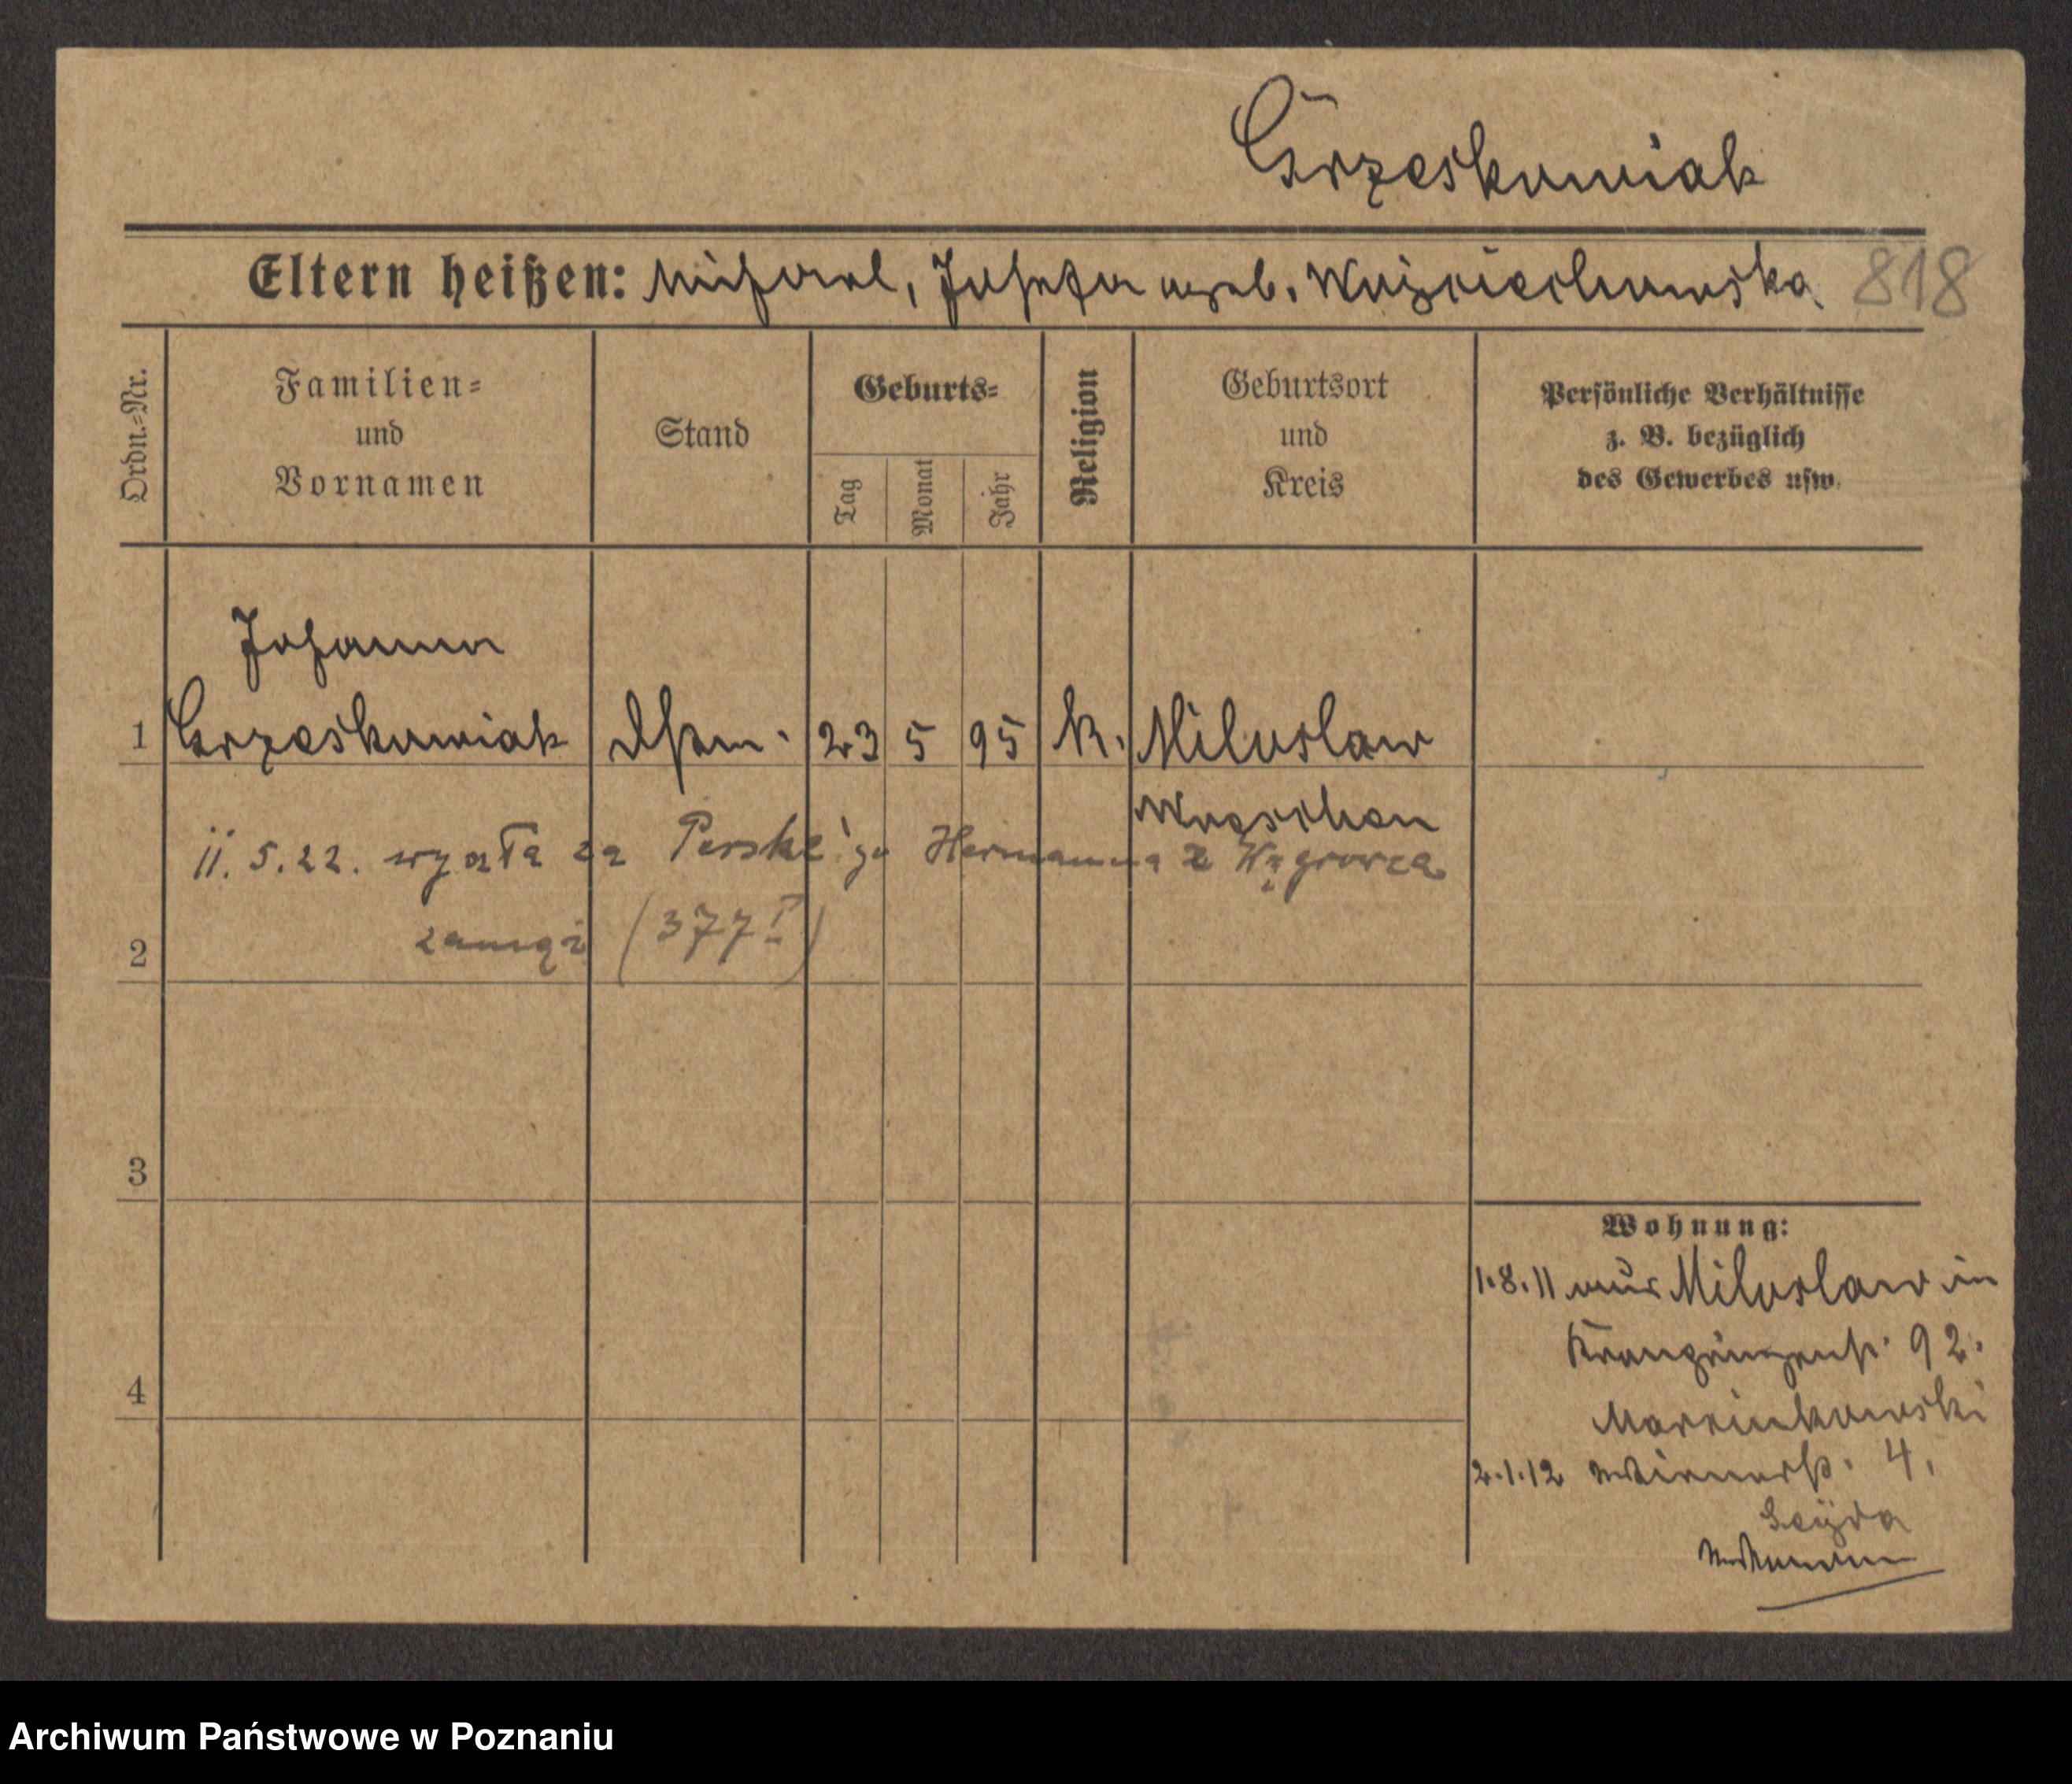 Grzeskowiak
Eltern heißen: Michael, Josefa geb. Wojciechowska 818
Ordn.=Nr.
Familien=
und
Vornamen
Stand
Geburts=
Tag
Monat
Jahr
Religion
Geburtsort
und
Kreis
Persönliche Verhältnisse
z. B. bezüglich
des Gewerbes usw.
Johanna
1 Grzeskowiak 23 5 95 K. Miloslaw
Wreschen
11. 5. 22. wyszła za Perske'go Hermanna z Wągrowca
2 zamąż (377 I)
3
4
Wohnung:
1.8.11 aus Miloslaw in
Kronprinzenst. 92.
Marcinkowski
2.1.12 4.
Seyda
Archiwum Państwowe w Poznaniu